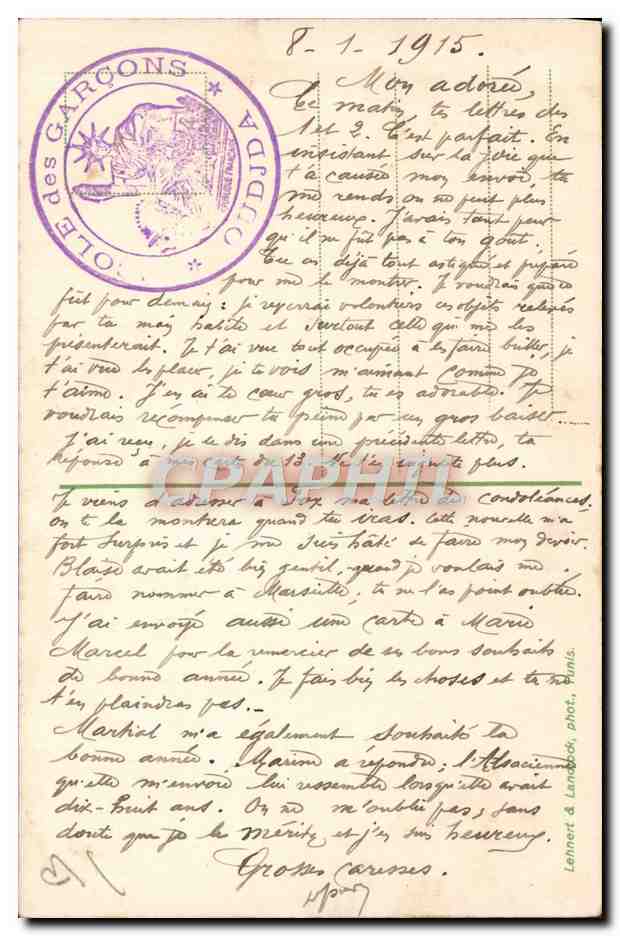 8-1-1915.
ÉCOLE des GARÇONS
OUDJDA
Mon adorée,
Ce matin, tes lettres des
1 et 2. C'est parfait. En
insistant sur la joie que
t'a causée mon envoi, tu
me rends on ne peut plus
heureux. J'avais tant peur
qu'il ne fût pas à ton goût.
Tu as déjà tout astiqué et préparé
pour me le montrer. Je voudrais que ce
fût pour demain : je reverrai volontiers ces objets
par ta main habile et surtout celle qui me les
présenterait. Je t'ai vue tout occupée à les faire briller, je
t'ai vue les placer, je te vois m'aimant comme je
t'aime. J'en ai le cœur gros, tu es adorable. Je
voudrais récompenser ta peine par un gros baiser...
J'ai reçu, je le dis dans une précédente lettre, ta
réponse à mes carte du 13. Ne t'en inquiète plus.
CPAPHIL
Je viens d'adresser à ma lettre de condoléances.
On te la montrera quand tu iras. Cette nouvelle m'a
fort surpris et je me suis hâté de faire mon devoir.
Blaise avait été bien gentil, quand je voulais me
faire nommer à Marseille, tu ne l'as point oublié.
J'ai envoyé aussi une carte à Marie
Marcel pour la remercier de ses bons souhaits
de bonne année. Je fais bien les choses et tu ne
t'en plaindras pas. _
Martial m'a également souhaité la
bonne année. Marine a répondu ; l'Alsacienne
qu'elle m'envoie lui ressemble lorsqu'elle avait
dix-huit ans. On ne m'oublie pas, sans
doute que je le mérite et j'en suis heureux.
Grosses caresses.
Lehnert & Landrock, phot., Tunis.